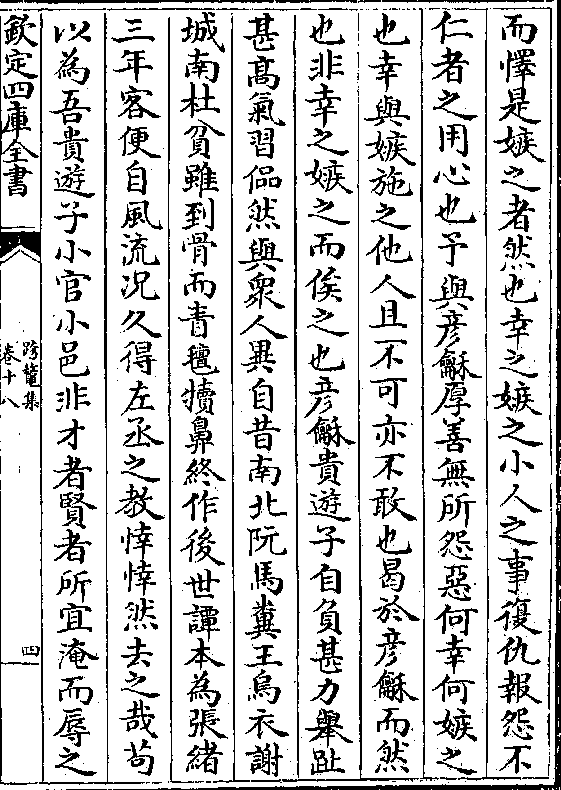 而懌是嫉之者然也幸之嫉之小人之事復仇報怨不
仁者之用心也予與彦龢厚善無所怨惡何幸何嫉之
也幸與嫉施之他人且不可亦不敢也曷於彦龢而然
也非幸之嫉之而俟之也彦龢貴遊子自負甚力舉趾
甚髙氣習偘然與衆人異自昔南北阮馬糞王烏衣謝
城南杜貧雖到骨而青氊犢鼻終作後世譚本為張緒
三年客便自風流况久得左丞之教悻悻然去之哉苟
以為吾貴遊子小官小邑非才者賢者所宜淹而辱之
欽定四庫全書
跨鼇集
卷十八
四